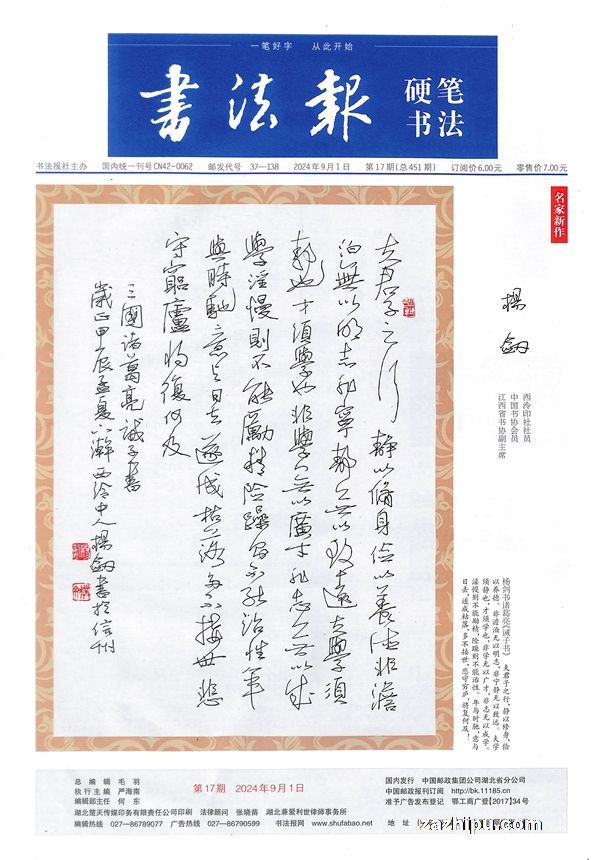 一笔好字 从此开始
书法报 硬笔书法
书法报社主办 国内统一刊号CN42-0062 邮发代号 37—138 2024年9月1日 第17期(总451期) 订阅价6.00元 零售价7.00元
名家新作
杨剑
西泠印社社员
中国书协会员
江西省书协副主席
夫君子之行静以脩身俭以養德非澹
泊無以明志非寧静無以致遠夫學須
静也才須學也非學無以廣才非志無以成
學淫慢則不能勵精險躁則不能治性年
與時馳意与日去遂成枯落多不接世悲
守窮廬將復何及
三國诸葛亮誡子書
歲在甲辰孟夏八瀚西泠中人楊劍書於信州
杨剑书诸葛亮《诫子书》 夫君子之行，静以修身，俭
以养德。非澹泊无以明志，非宁静无以致远。夫学
须静也，才须学也，非学无以广才，非志无以成学。
淫慢则不能励精，险躁则不能治性。年与时驰，意与
日去，遂成枯落，多不接世，悲守穷庐，将复何及！
总编辑 毛羽
执行主编 严海南
编辑部主任 何东
第17期 2024年9月1日
国内发行 中国邮政集团公司湖北省分公司
中国邮政报刊订阅 http://bk.11185.cn
准予广告发布登记 鄂工商广登【2017】34号
湖北楚天传媒印务有限责任公司印刷 法律顾问 张晓苗 湖北兼爱利世律师事务所
编辑热线 027—86789077 广告热线 027—86790599 书法报网 www.shufabao.net 地址
zazhipu.com